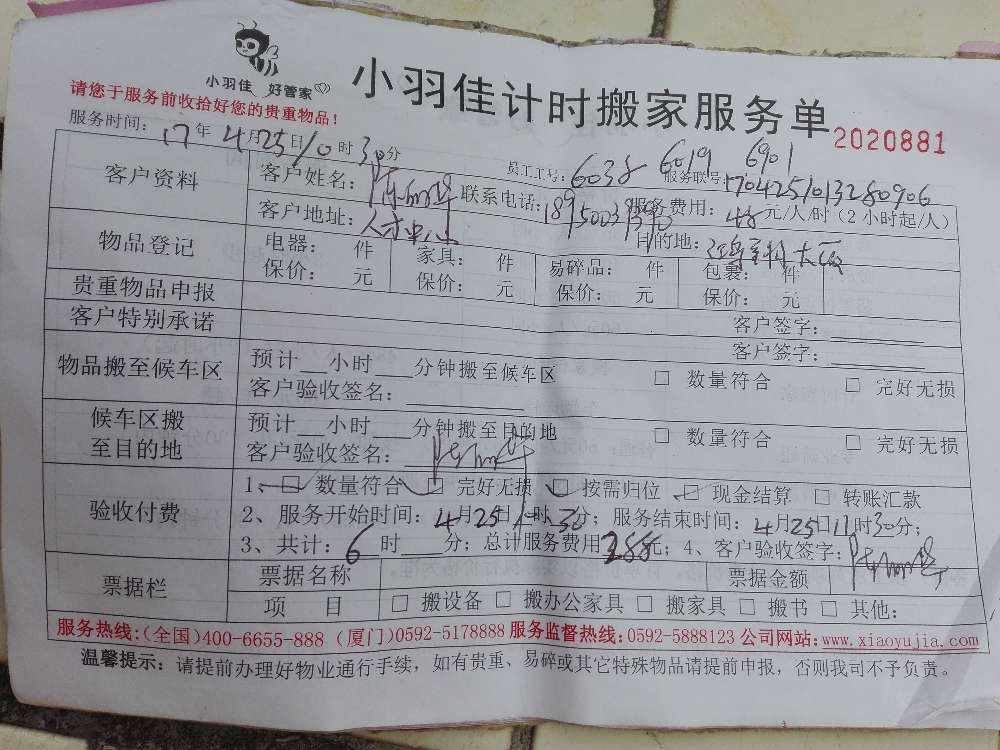 小羽佳 好管家
小羽佳计时搬家服务单
2020881
请您于服务前收拾好您的贵重物品!
服务时间: 17年4月25日10时30分
员工工号: 6038 6019 6901
服务联号: 1704251013280906
客户资料
客户姓名: 陈丽华
联系电话:
服务费用: 48元/人/时(2小时起/人)
客户地址: 人才中心
目的地:
物品登记
电器: 件 家具: 件 易碎品: 件 包裹: 件
保价: 元 保价: 元 保价: 元 保价: 元
贵重物品申报
客户签字:
客户特别承诺
客户签字:
物品搬至候车区
预计__小时___分钟搬至候车区
客户验收签名:
□ 数量符合 □ 完好无损
候车区搬至目的地
预计__小时___分钟搬至目的地
客户验收签名: 陈丽华
□ 数量符合 □ 完好无损
验收付费
1、□ 数量符合 □ 完好无损 □ 按需归位 □ 现金结算 □ 转账汇款
2、服务开始时间: 4月25日 时30分; 服务结束时间: 4月25日11时30分;
3、共计: 6时___分; 总计服务费用288元; 4、客户验收签字: 陈丽华
票据栏
票据名称 票据金额
项 目 □ 搬设备 □ 搬办公家具 □ 搬家具 □ 搬书 □ 其他:
服务热线:(全国)400-6655-888 (厦门)0592-5178888 服务监督热线:0592-5888123 公司网站:www.xiaoyujia.com
温馨提示: 请提前办理好物业通行手续,如有贵重、易碎或其它特殊物品请提前申报,否则我司不予负责。